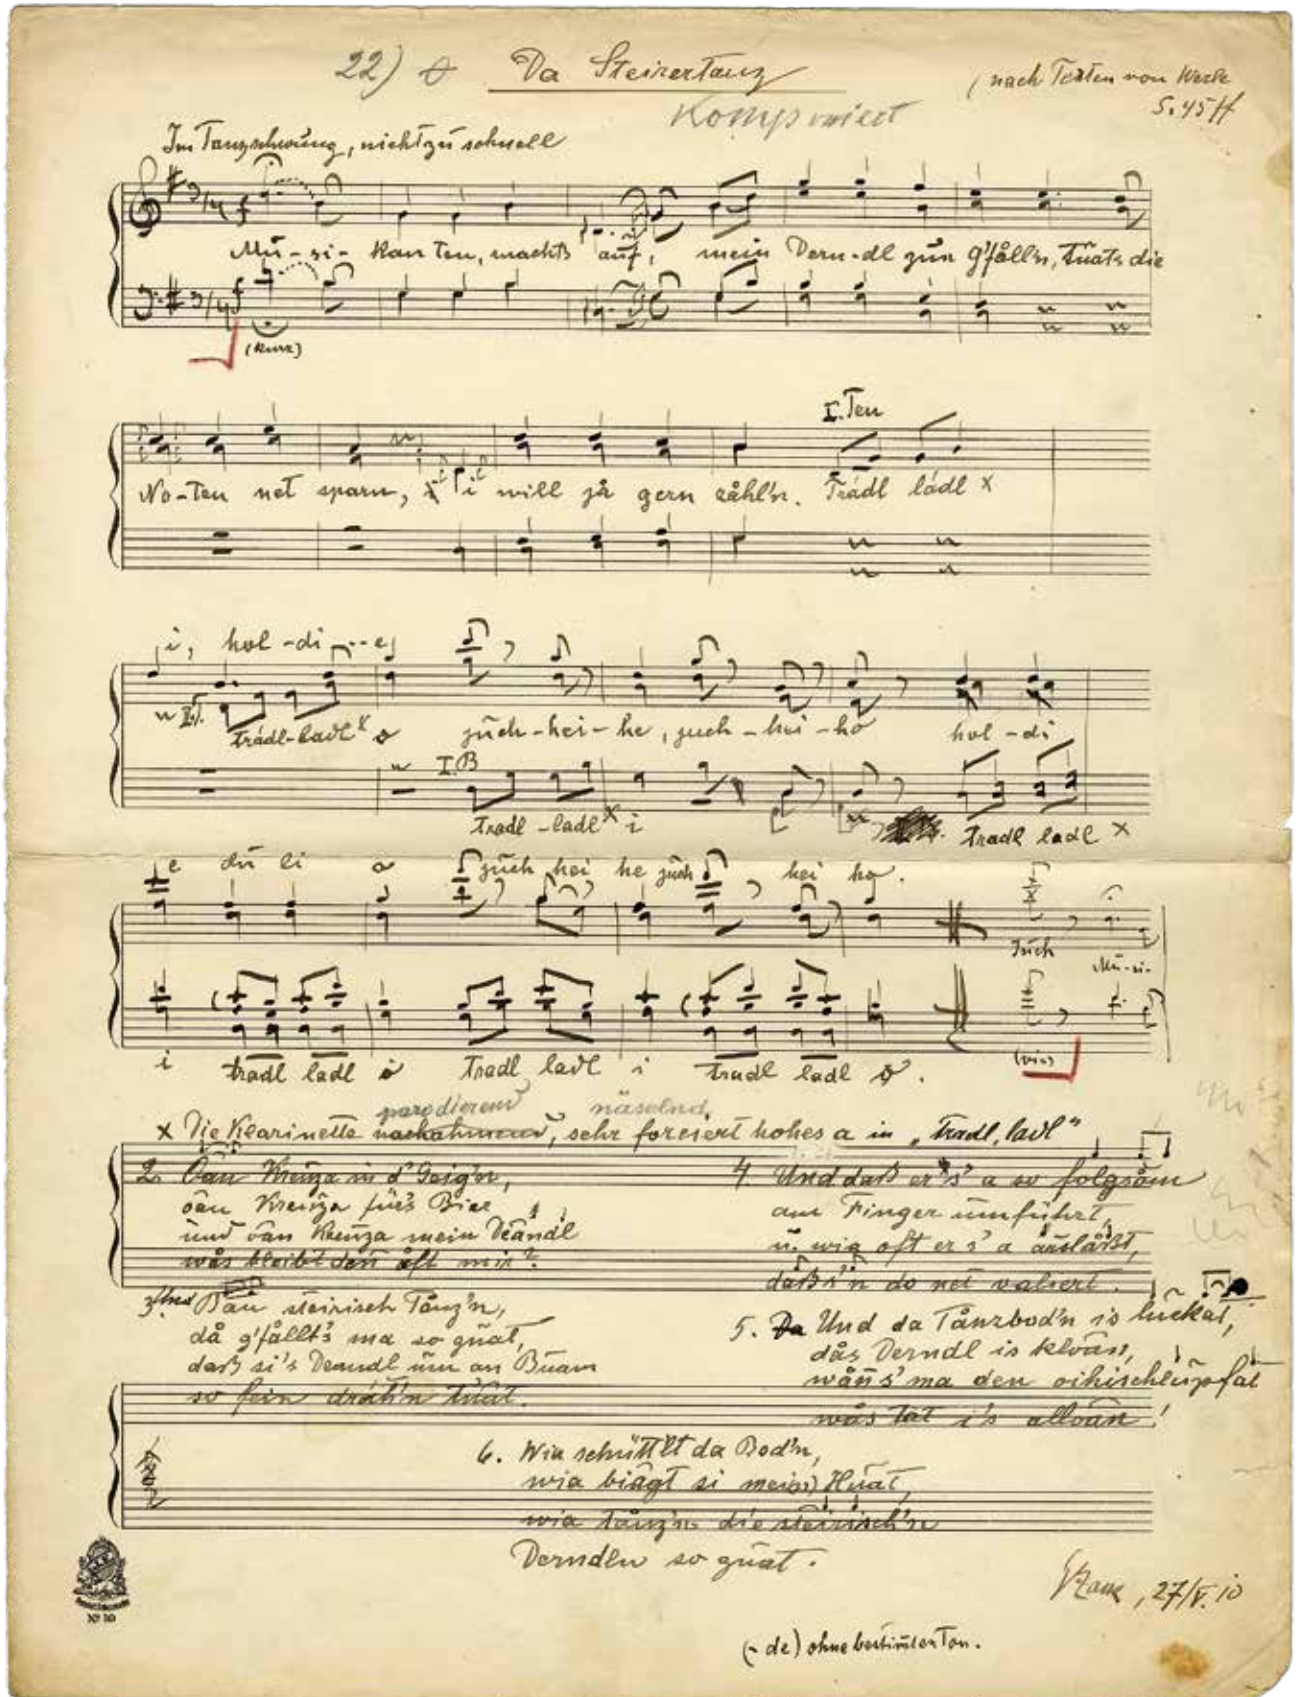 22) Da Steirertanz
(nach Texten von Werle
Komponiert
S. 45 ff
Im Tanzschwung, nicht zu schnell
Mu-si-kanten, machts auf, mein Dern-dl zun g'fålln, tuats die
(kurz)
I. Ten
No-ten net sparn, i will jå gern zåhl'n. Tradl ladl x
i, hol-di--e
II.
tradl-ladl x o juch-hei-he, juch-hei-ho hol-di
I. B
tradl-ladl x i tradl ladl x
e du li o juch hei he juch hei ho.
Juch
Mu-si-
i tradl ladl o tradl ladl i tradl ladl o.
parodierend näselnd
x Die Klarinette nachahmend, sehr forciert hohes a in „tradl, ladl"
2. Oan Kreuza in d' Geig'n,
oan Kreuza für's Bier
und oan Kreuza mein Deandl
wås bleibt den åft mir?
3. Ban steirisch Tånz'n,
då g'fållt's ma so guat,
daß si's Derndl um an Buam
so fein drah'n tuat.
4. Und daß er's' a so folgsåm
am Finger umführt,
u. wia oft er s' a auslåßt,
daß s'n do net valiert.
5. Da Und da Tånzbod'n is luckat,
dås Derndl is kloan,
wånn s' ma den oihischlupfat
wås tat i's alloan!
6. Wia schüttlt da Bod'n,
wia biagt si mein Huat,
wia tånz'n die steirisch'n
Derndln so guat.
No 10
27/V. 10
(-de) ohne bestimten Ton.